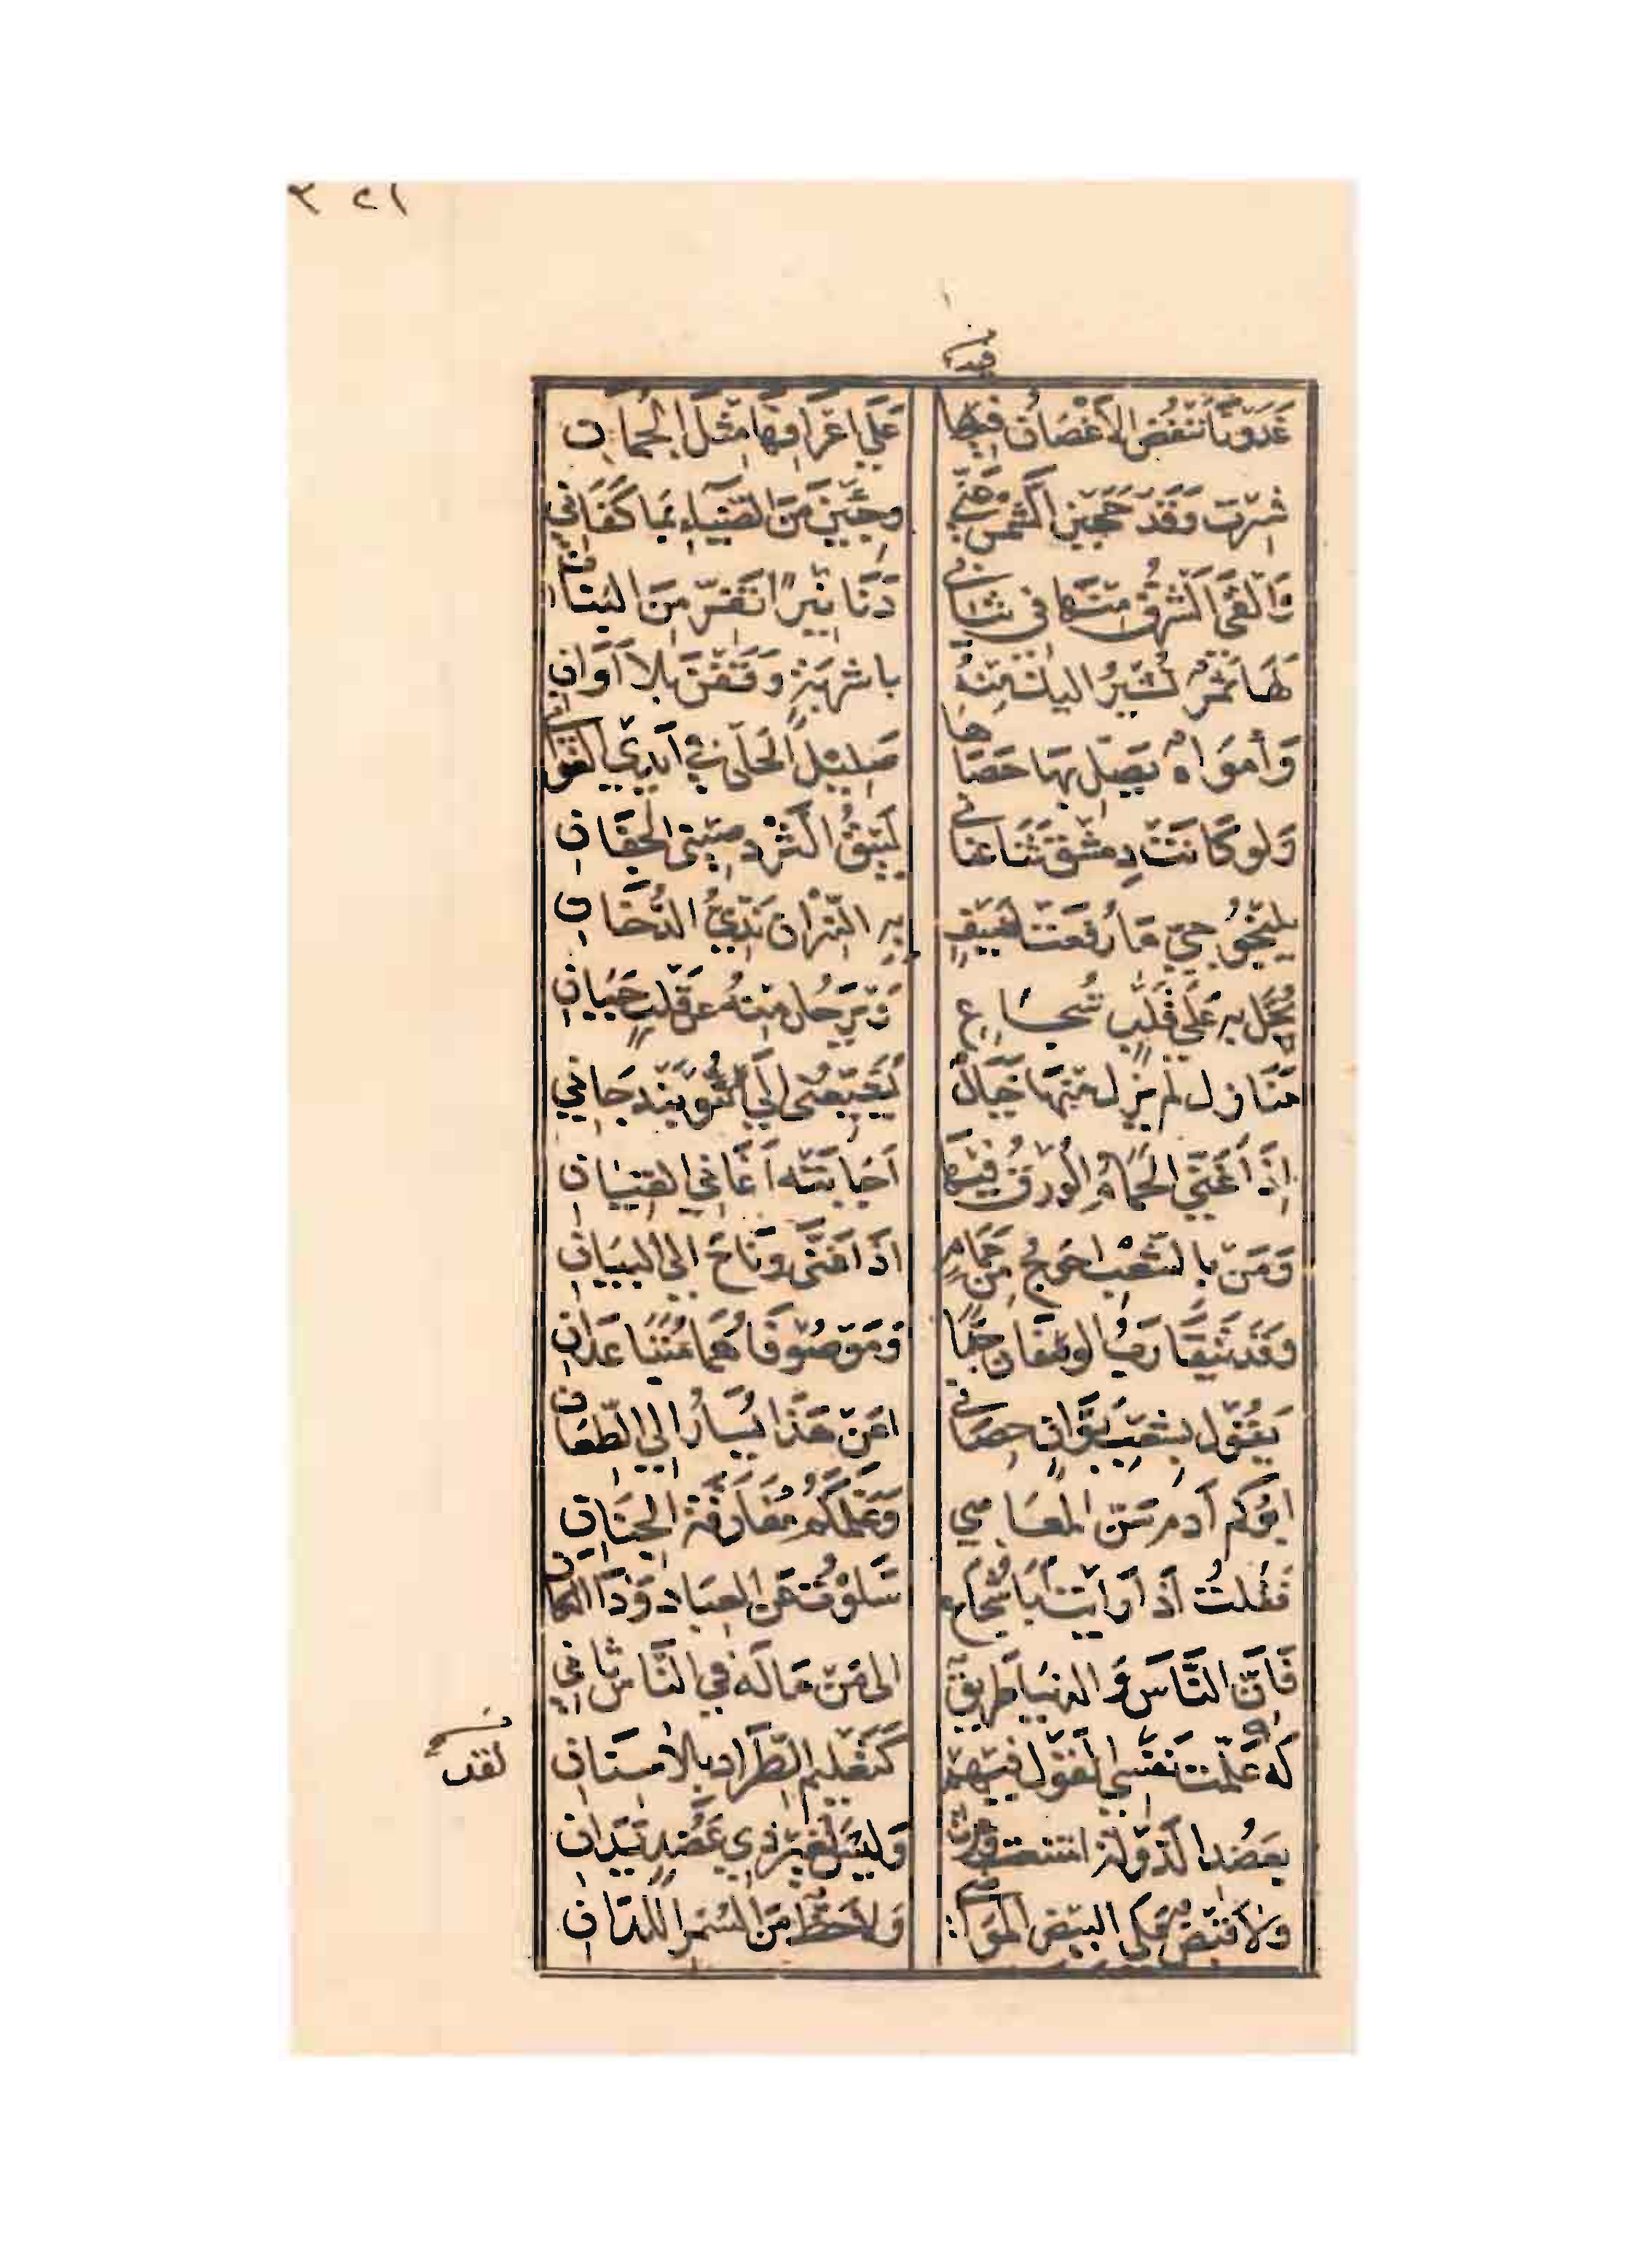 ٣٢١
فيه
غَدَوْنَا تَنْفُضُ الأَغْصَانُ فِيهَا عَلَى اعْرَافِهَا مِثْلَ الجُمَانِ
فسرت وَقَدْ حَجَبْنَ الشَّمْسَ عَنِّي وَجِئْنَ مِنَ الضِّيَاءِ بِمَا كَفَانِي
وَأَلْقَى الشَّرْقُ مِنْهَا فِي ثِيَابِي دَنَانِيرًا تَفِرُّ مِنَ البَنَانِ
لَهَا ثَمَرٌ تُشِيرُ اليكَ مِنْهُ باشربَةٍ وَقَفْنَ بِلاَ أَوَانِ
وَأَمْوَاهٌ يَصِلُّ بِهَا حَصَاهَا صَلِيلَ الحَلْىِ فِي أَيْدِي الغَوَانِي
وَلَو كَانَتْ دِمَشْقَ ثَنَى عِنَانِي لَبِيقُ الثُّرْدِ صِينِىُّ الجِفَانِ
يلنجوجيّ مَا رُفِعَتْ لِضَيْفٍ بِهِ النِّيرَانُ نَدِّيُّ الدُّخَانِ
تحُلُّ بِهِ عَلَى قَلْبٍ شُجَاعٍ وَتَرْحَلُ مِنْهُ عَن قَلْبٍ جَبَانِ
مَنَازِل لَمْ يَزَل مِنْهَا خَيَالٌ يُشَيِّعُنِى إِلَى النُّوبَنْدَجَانِي
إِذَا غَنَّى الحَمَامُ الوُرْقُ فِيهَا أَجَابَتْه أَغَانِي القِيَانِ
وَمَنْ بِالشِّعْبِ احوج مِن حَمَامٍ اذَا غَنَّى وَنَاحَ إِلَى البَيَانِ
وَقَدْ يَتَقَارَبُ الوصفَانِ جِدًّا وَمَوْصُوفَاهُمَا مُتَبَاعِدَانِ
يَقُولُ بِشِعْبِ بَوَّانٍ حِصَانِي اعَنْ هَذَا يُسَارُ إِلَى الطِّعَانِ
ابُوكُم آدَم سَنَّ المَعَاصِي وَعَلَّمَكُمْ مُفَارَقَةَ الجِنَانِ
فَقُلتُ اذَا رَأَيْتُ أَبَا شُجَاعٍ سَلَوْتُ عَنِ العِبَادِ وَذَا المَكَانِ
فَانَّ النَّاسَ وَالدنيَا طَرِيقٌ الى مَنْ مَا لَهُ فِي النَّاسِ ثَانِي
لَه عَلَّمْتُ نَفْسِي القَوْلَ فِيهِمْ كَتَعْلِيمِ الطِّرَادِ بِلا سِنَانِ
لقد
بِعَضُدِ الدَّوْلَةِ امتنعت وعزت وَلَيْسَ لِغَيْرِ ذِي عَضُدٍ يَدَانِ
وَلاَ قَبْضٌ عَلَى البيْضِ المَوَاضِي وَلاَ حَظٌّ مِنَ السُّمْرِ اللِّدَانِ